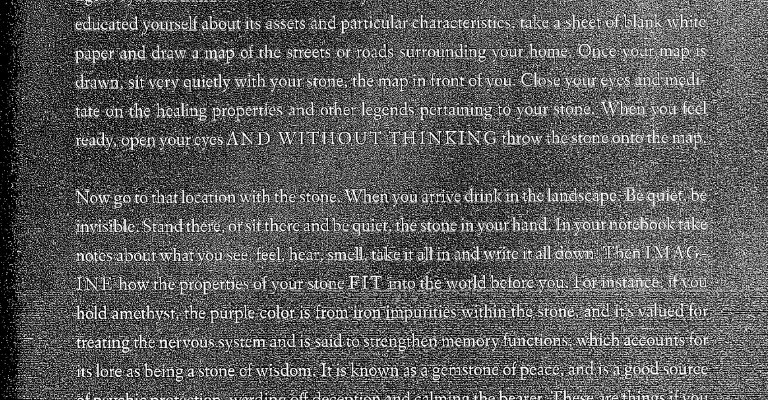 educated yourself about its assets and particular characteristics, take a sheet of blank white
paper and draw a map of the streets or roads surrounding your home. Once your map is
drawn, sit very quietly with your stone, the map in front of you. Close your eyes and medi-
tate on the healing properties and other legends pertaining to your stone. When you feel
ready, open your eyes AND WITHOUT THINKING throw the stone onto the map.
Now go to that location with the stone. When you arrive drink in the landscape. Be quiet, be
invisible. Stand there, or sit there and be quiet, the stone in your hand. In your notebook take
notes about what you see, feel, hear, smell, take it all in and write it all down. Then IMAG-
INE how the properties of your stone FIT into the world before you. For instance, if you
hold amethyst, the purple color is from iron impurities within the stone, and it's valued for
treating the nervous system and is said to strengthen memory functions, which accounts for
its lore as being a stone of wisdom. It is known as a gemstone of peace, and is a good source
of psychic protection, warding off deception and calming the bearer. These are things if you